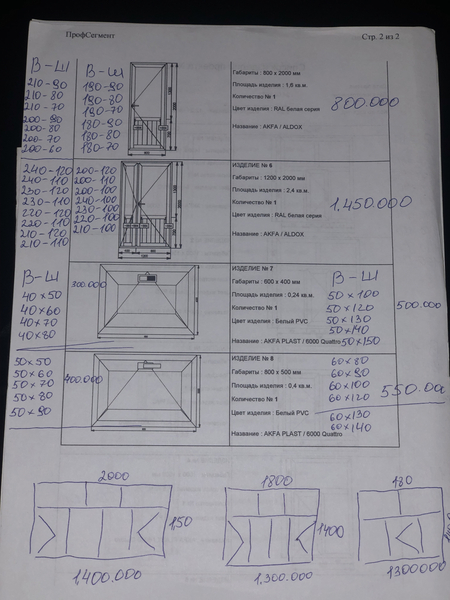 ПрофСегмент
Стр. 2 из 2
В-Ш
210-90
210-80
210-70
200-90
200-80
200-70
200-60
В-Ш
190-90
190-80
190-70
180-90
180-80
180-70
Габариты : 800 x 2000 мм
Площадь изделия : 1,6 кв.м.
Количество № 1
Цвет изделия : RAL белая серия
Название : AKFA / ALDOX
800.000
240-120
240-110
230-120
230-110
220-120
220-110
210-120
210-110
200-120
200-110
200-100
240-100
230-100
220-100
210-100
ИЗДЕЛИЕ № 6
Габариты : 1200 x 2000 мм
Площадь изделия : 2,4 кв.м.
Количество № 1
Цвет изделия : RAL белая серия
Название : AKFA / ALDOX
1.450.000
В-Ш
40×50
40×60
40×70
40×80
300.000
ИЗДЕЛИЕ № 7
Габариты : 600 x 400 мм
Площадь изделия : 0,24 кв.м.
Количество № 1
Цвет изделия : Белый PVC
Название : AKFA PLAST / 6000 Quattro
В-Ш
50×100
50×120
50×130
50×140
50×150
500.000
50×50
50×60
50×70
50×80
50×90
400.000
ИЗДЕЛИЕ № 8
Габариты : 800 x 500 мм
Площадь изделия : 0,4 кв.м.
Количество № 1
Цвет изделия : Белый PVC
Название : AKFA PLAST / 6000 Quattro
60×80
60×90
60×100
60×120
60×130
60×140
2000
150
1,400.000
1800
1400
1,300.000
180
1300000